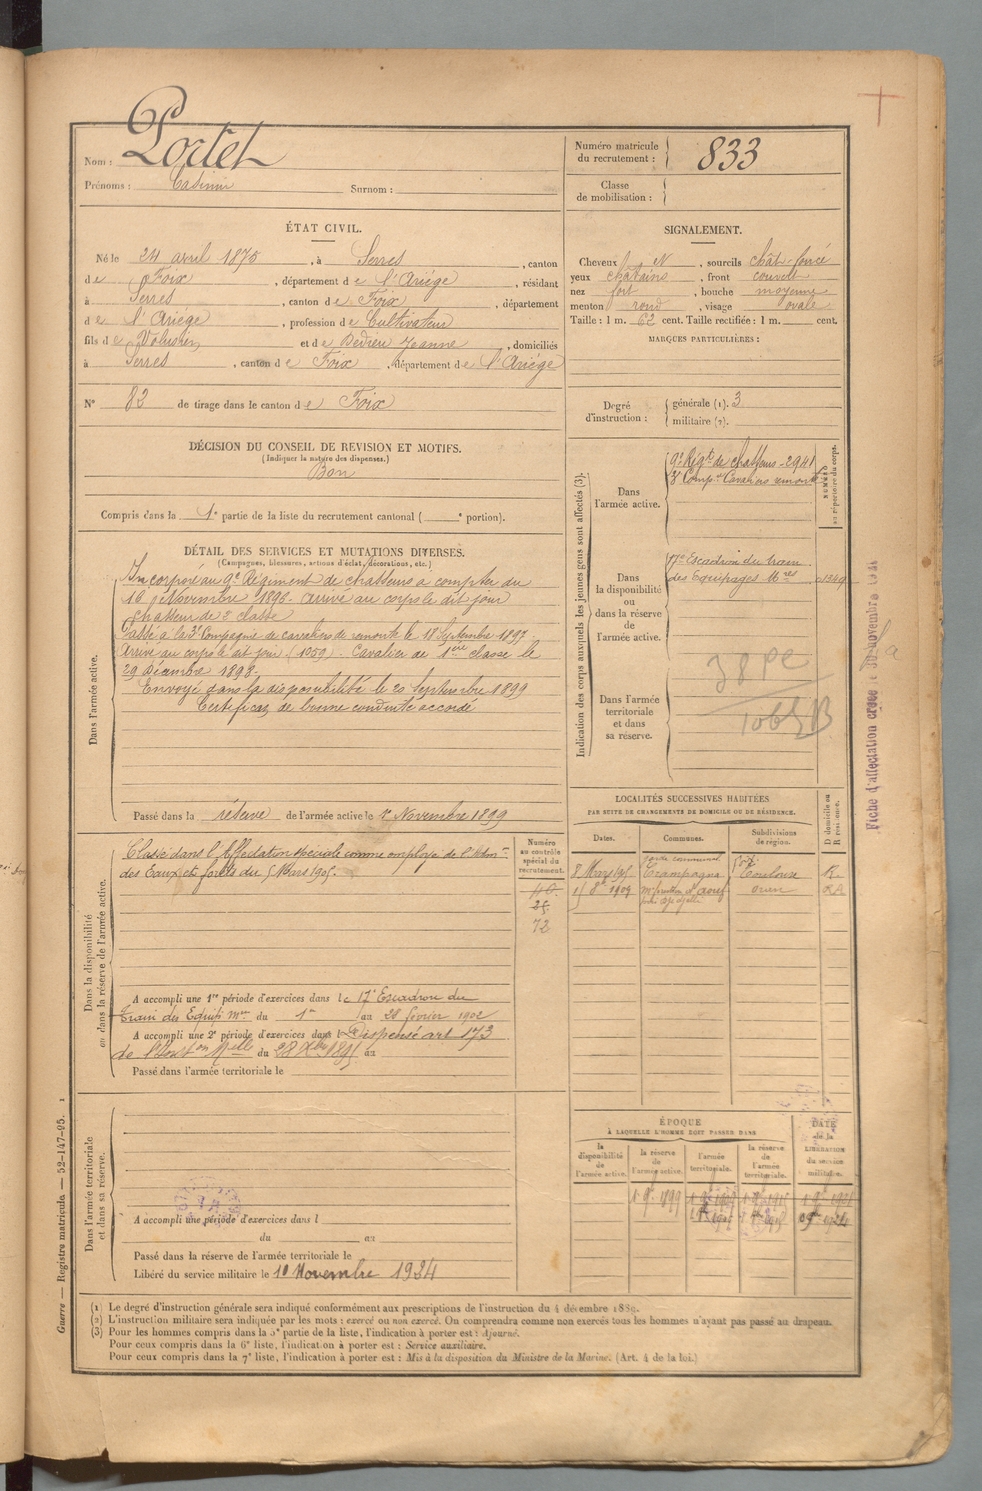 Nom : Portet
Prénoms : Casimir Surnom :
Numéro matricule du recrutement : 833
Classe de mobilisation :
ÉTAT CIVIL.
Né le 24 avril 1875, à Serres, canton
de Foix, département de l'Ariége, résidant
à Serres, canton de Foix, département
de l'Ariége, profession de Cultivateur
fils de Volusien et de Dedieu Jeanne, domiciliés
à Serres, canton de Foix, département de l'Ariége
N° 83 de tirage dans le canton de Foix
DÉCISION DU CONSEIL DE REVISION ET MOTIFS.
(Indiquer la nature des dispenses.)
Bon
Compris dans la 1e partie de la liste du recrutement cantonal ( e portion).
SIGNALEMENT.
Cheveux N, sourcils chât-foncé
yeux chatains, front couvert
nez fort, bouche moyenne
menton rond, visage ovale
Taille : 1 m. 62 cent. Taille rectifiée : 1 m. cent.
MARQUES PARTICULIÈRES :
Degré d'instruction : générale (1). 3
militaire (2).
DÉTAIL DES SERVICES ET MUTATIONS DIVERSES.
(Campagnes, blessures, actions d'éclat, décorations, etc.)
Dans l'armée active.
Incorporé au 9e Régiment de chasseurs a compter du
16 Novembre 1896. Arrivé au corps le dit jour
Chasseur de 2e classe
Passé a la 3e Compagnie de cavaliers de remonte le 18 Septembre 1897.
Arrivé au corps le dit jour (1059). Cavalier de 1ère classe le
29 Décembre 1898.
Envoyé dans la disponibilité le 20 Septembre 1899
Certificat de bonne conduite accordé
Passé dans la réserve de l'armée active le 1er Novembre 1899
Indication des corps auxquels les jeunes gens sont affectés (3).
NUMÉRO au répertoire du corps.
Dans l'armée active.
9e Régt de chasseurs - 2941
3e Compie Cavaliers remonte
Dans la disponibilité ou dans la réserve de l'armée active.
17e Escadron du train
des Equipages Mres 01349
Dans l'armée territoriale et dans sa réserve.
Dans la disponibilité ou dans la réserve de l'armée active.
Classé dans l'Affectation spéciale comme employé de l'Admon
des Eaux et forêts du 5 Mars 1905.
Numéro au contrôle spécial du recrutement.
40
25
72
A accompli une 1re période d'exercices dans le 17e Escadron du
Train des Equip Mres du 1er au 28 février 1902
A accompli une 2e période d'exercices dans le Dispensé art 173
de l'Instion Melle du 28 Xbre 1895 au
Passé dans l'armée territoriale le
LOCALITÉS SUCCESSIVES HABITÉES
PAR SUITE DE CHANGEMENTS DE DOMICILE OU DE RÉSIDENCE.
Dates. Communes. Subdivisions de région. D domicile ou R résidence.
8 Mars 1905 garde communal Crampagna Foix Toulouse R.
15 8bre 1909 Oran RA
ÉPOQUE
À LAQUELLE L'HOMME DOIT PASSER DANS
la disponibilité de l'armée active.
la réserve de l'armée active.
l'armée territoriale.
la réserve de l'armée territoriale.
DATE de la LIBÉRATION du service militaire.
1er 9bre 1899
Dans l'armée territoriale et dans sa réserve.
A accompli une période d'exercices dans l
du au
Passé dans la réserve de l'armée territoriale le
Libéré du service militaire le 10 Novembre 1924
(1) Le degré d'instruction générale sera indiqué conformément aux prescriptions de l'instruction du 4 décembre 1889.
(2) L'instruction militaire sera indiquée par les mots : exercé ou non exercé. On comprendra comme non exercés tous les hommes n'ayant pas passé au drapeau.
(3) Pour les hommes compris dans la 5e partie de la liste, l'indication à porter est : Ajourné.
Pour ceux compris dans la 6e liste, l'indication à porter est : Service auxiliaire.
Pour ceux compris dans la 7e liste, l'indication à porter est : Mis à la disposition du Ministre de la Marine. (Art. 4 de la loi.)
Guerre — Registre matricule — 52-147-95. 1